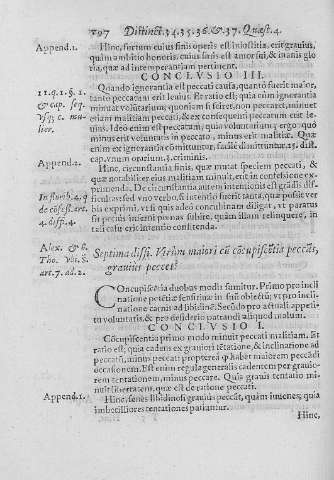 197 Distinct. 34. 35. 36. & 37. Quæst. 4.
Append. 1. Hinc, furtum cuius finis operis est iniustitia, erit grauius,
quàm ambitio honoris, cuius finis est amor sui, & inanis glo
ria, quæ ad intemperantiam pertinent.
CONCLVSIO III.
Quando ignorantia est peccati causa, quanto fuerit maior
11. q. 1. §. 1. tanto peccatum erit leuius. Est ratio est; quia cùm ignorantia
& cap. seq. minuat voluntarium; quoniam si sciret, non peccaret, minuet
Vsq; c. mu etiam malitiam peccati, & ex consequenti peccatum erit le
lier. uius. Ideo enim est peccatum; quia voluntarium; ergo quò
minus erit voluntatis in peccato, minus erit malitiæ. Quæ
enim ex ignorantia cōmittuntur, facilè dimittuntur. 25. dist.
cap. vnum orarium. §. criminis.
Append. 2. Hinc, circunstantia finis, quæ mutat speciem peccati, &
quæ notabiliter eius malitiam minuit, erit in confessione ex-
primenda. De circunstantia autem intentionis est gradis dif-
In florib. 4. q ficultas; sed vno verbo, si intentio fuerit tanta, quæ possit ver
de cōfess. art. bis exprimi, vt si quis adeò concubinam diligat, vt paratus
4. diff. 4. sit potiùs inferni pœnas subire, quàm illam relinquere, in
tali casu erit intentio confitenda.
Alex. & S. Septima diffi. Vtrùm maiori cū cōcupiscētia peccās,
Tho. vbi §. grauiùs peccet?
art. 7. ad. 2.
Concupiscentia duobus modis sumitur. Primo pro incli
natione potētiæ sensitiuæ in sui obiectū: vt pro incli
natione carnis ad libidinē. Secūdo pro actuali appeti-
tu voluntatis, & pro desiderio patrandi aliquod malum.
CONCLVSIO I.
Cōcupiscentia primo modo minuit peccati malitiam. Est
ratio est; quia cadens ex grauiori tētatione, & inclinatione ad
peccatū, minus peccati propterea q̱ habet maiorem peccādi
occasionem. Est enim regula generalis cadentem per grauio-
rem tentationem, minùs peccare. Quia grauis tentatio mi-
nuit libertatem, quæ est de ratione peccati.
Append. 1. Hinc, senes libidinosi grauiùs peccāt, quàm iuuenes; quia
imbecilliores tentationes patiuntur.
Hinc,